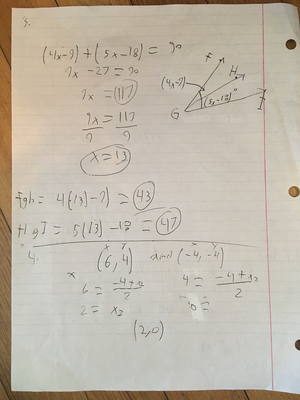 3.
(4x-9) + (5x-18) = 90
9x - 27 = 90
9x = 117
9x = 117
9 9
x = 13
F
H
(4x-9)
(5x-18)°
G
I
Fgh = 4(13)-9 = 43
HgI = 5(13)-18 = 47
4.
x y
(6, 4) and (-4, -4)
x
6 = -4+x2
2
4 = -4+x2
2
2 = x2
(2,0)